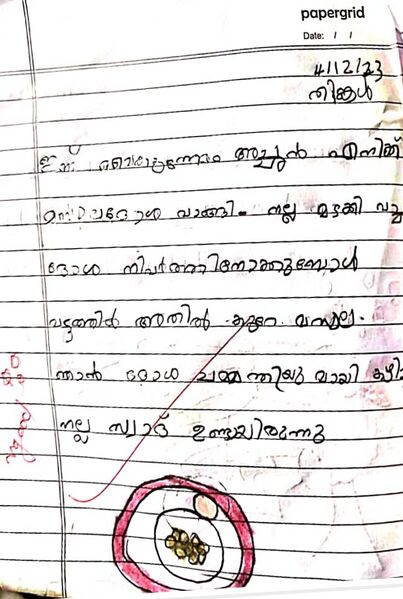 papergrid
Date: / /
4/12/23
തിങ്കൾ
ഇന്ന് വൈകുന്നേരം അച്ഛൻ എനിക്ക്
മസാലദോശ വാങ്ങി. നല്ല മടക്കി വച്ച
ദോശ നിവർത്തിനോക്കുമ്പോൾ
വട്ടത്തിൽ അതിൽ കുറെ മസാല.
ഞാൻ ദോശ ചമ്മന്തിയുമായി കഴി
നല്ല സ്വാദ് ഉണ്ടായിരുന്നു